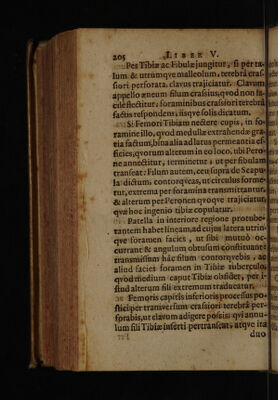 205 LIBER V.
Pes Tibiæ ac Fibulæ jungitur, si per ta-
lum & utrumqve malleolum, terebrâ cras-
siori perforata, clavus trajiciatur. Clavum
appello æneum filum crassius, qvod non fa-
cilè flectitur, foraminibus crassiori terebrâ
factis respondens, iisqve solis dicatum.
Si Femori Tibiam nectere cupis, in fo-
ramine illo, qvod medullæ extrahendæ gra-
tia factum, bina alia ad latus permeantia ef-
ficies, qvorum alterum in eo loco, ubi Pero-
ne annectitur, terminetur, ut per fibulam
transeat: Filum autem, ceu supra de Scapu-
la dictum, contorqveas, ut circulus forme-
tur, extrema per foramina transmittantur,
& alterum per Peronen qvoqve trajiciatur,
qvæ hoc ingenio tibiæ copulatur.
Patella in interiore regione protube-
rantem habet lineam, ad cujus latera utrin-
qve foramen facies, ut sibi mutuò oc-
currant & angulum obtusum constituant
transmissum hâc filum contorqvebis, ac
aliud facies foramen in Tibiæ tuberculo,
qvod medium caput Tibiæ obsidet, per i-
stud alterum fili extremum traducatur.
Femoris capitis inferioris processus po-
stici per transversum crassiori terebrâ per-
forabis, ut clavum adigere possis: qvi annu-
lum fili Tibiæ inserti pertranseat, atqve ita
duo